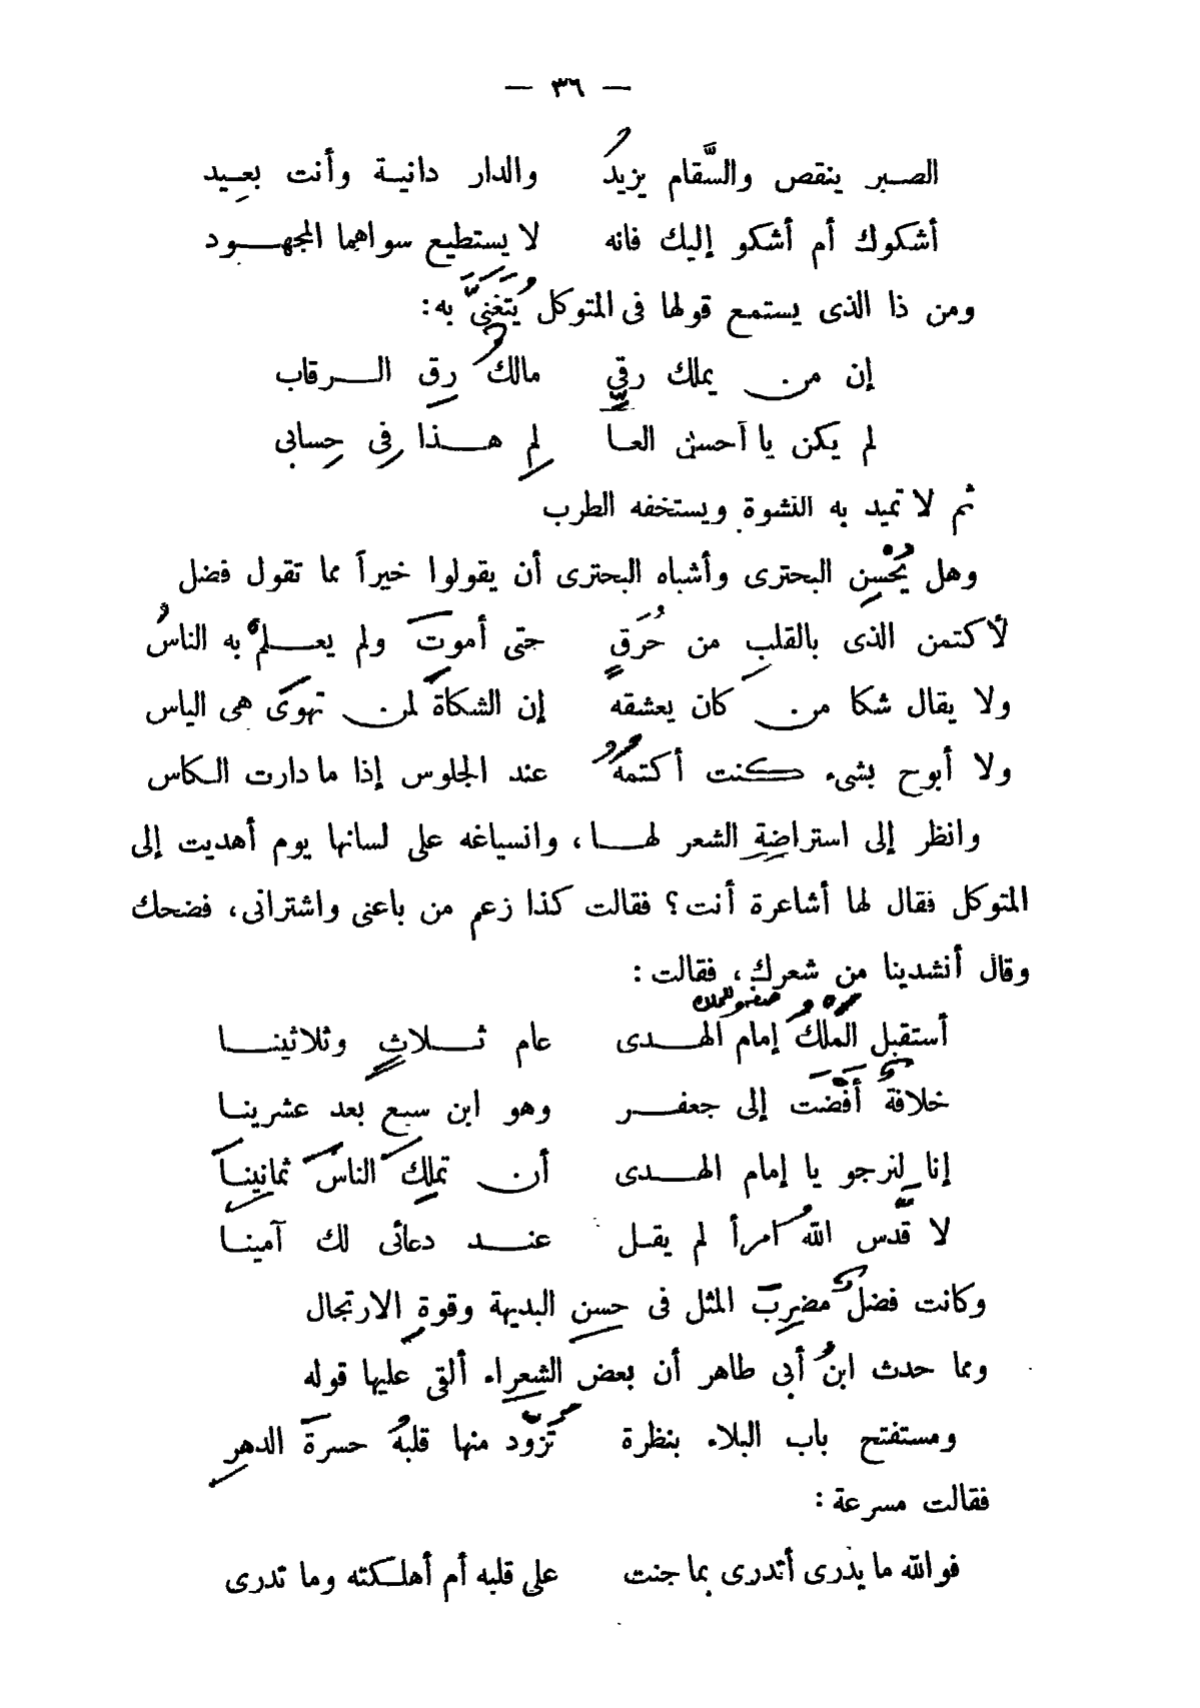 — ٣٦ —
الصبر ينقص والسَّقام يزيدُ والدار دانية وأنت بعيد
أشكوك أم أشكو إليك فانه لا يستطيع سواهما المجهود
ومن ذا الذى يستمع قولها فى المتوكل يُتَغَنَّى به:
إن من يملك رقِّي مالكُ رِق الرقاب
لم يكن يا أحسن العا لمِ هذا فِى حِسابى
ثم لا تميد به النشوة ويستخفه الطرب
وهل يُحْسِن البحترى وأشباه البحترى أن يقولوا خيراً مما تقول فضل
لأكتمن الذى بالقلبِ من حُرَقٍ حتى أموتَ ولم يعلمْ به الناسُ
ولا يقال شكا من كان يعشقه إن الشكاةَ لمن تهوَى هى الياس
ولا أبوح بشىء كنت أكتمهُ عند الجلوس إذا ما دارت الكاس
وانظر إلى استراضةِ الشعر لها، وانسياغه على لسانها يوم أهديت إلى
المتوكل فقال لها أشاعرة أنت؟ فقالت كذا زعم من باعنى واشترانى، فضحك
وقال أنشدينا من شعرك، فقالت:
أستقبل المَلْكُ إمام الهدى عام ثلاثٍ وثلاثينا
خلافةٌ أفْضَت إلى جعفر وهو ابن سبع بعد عشرينا
إنا لَنرجو يا إمام الهدى أن تملِكَ الناسَ ثمانِينَا
لا قَدَّس اللهُ امرأ لم يقل عند دعائى لك آمينا
وكانت فضلٌ مضرِبَ المثل فى حسنِ البديهة وقوةِ الارتجال
ومما حدث ابنُ أبى طاهر أن بعض الشعراء ألقى عليها قوله
ومستفتح باب البلاء بنظرة تَزَوَّد منها قلبهُ حسرةَ الدهرِ
فقالت مسرعة:
فوالله ما يذرى أتدرى بما جنت على قلبه أم أهلكته وما تدرى